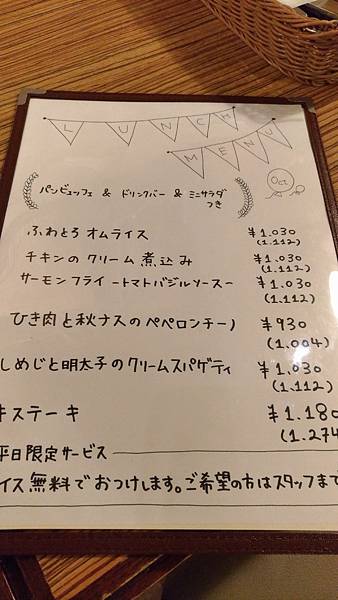 LUNCH
MENU
Oct
パンビュッフェ & ドリンクバー & ミニサラダ
つき
ふわとろ オムライス ¥1.030
(1.112)
チキンの クリーム 煮込み ¥1.030
(1.112)
サーモン フライ ートマトバジルソースー ¥1.030
(1.112)
ひき肉と秋ナスのペペロンチーノ ¥930
(1.004)
しめじと明太子のクリームスパゲティ ¥1.030
(1.112)
ステーキ ¥1.180
(1.274
平日限定サービス
イス 無料で おつけします。ご希望の方はスタッフまで